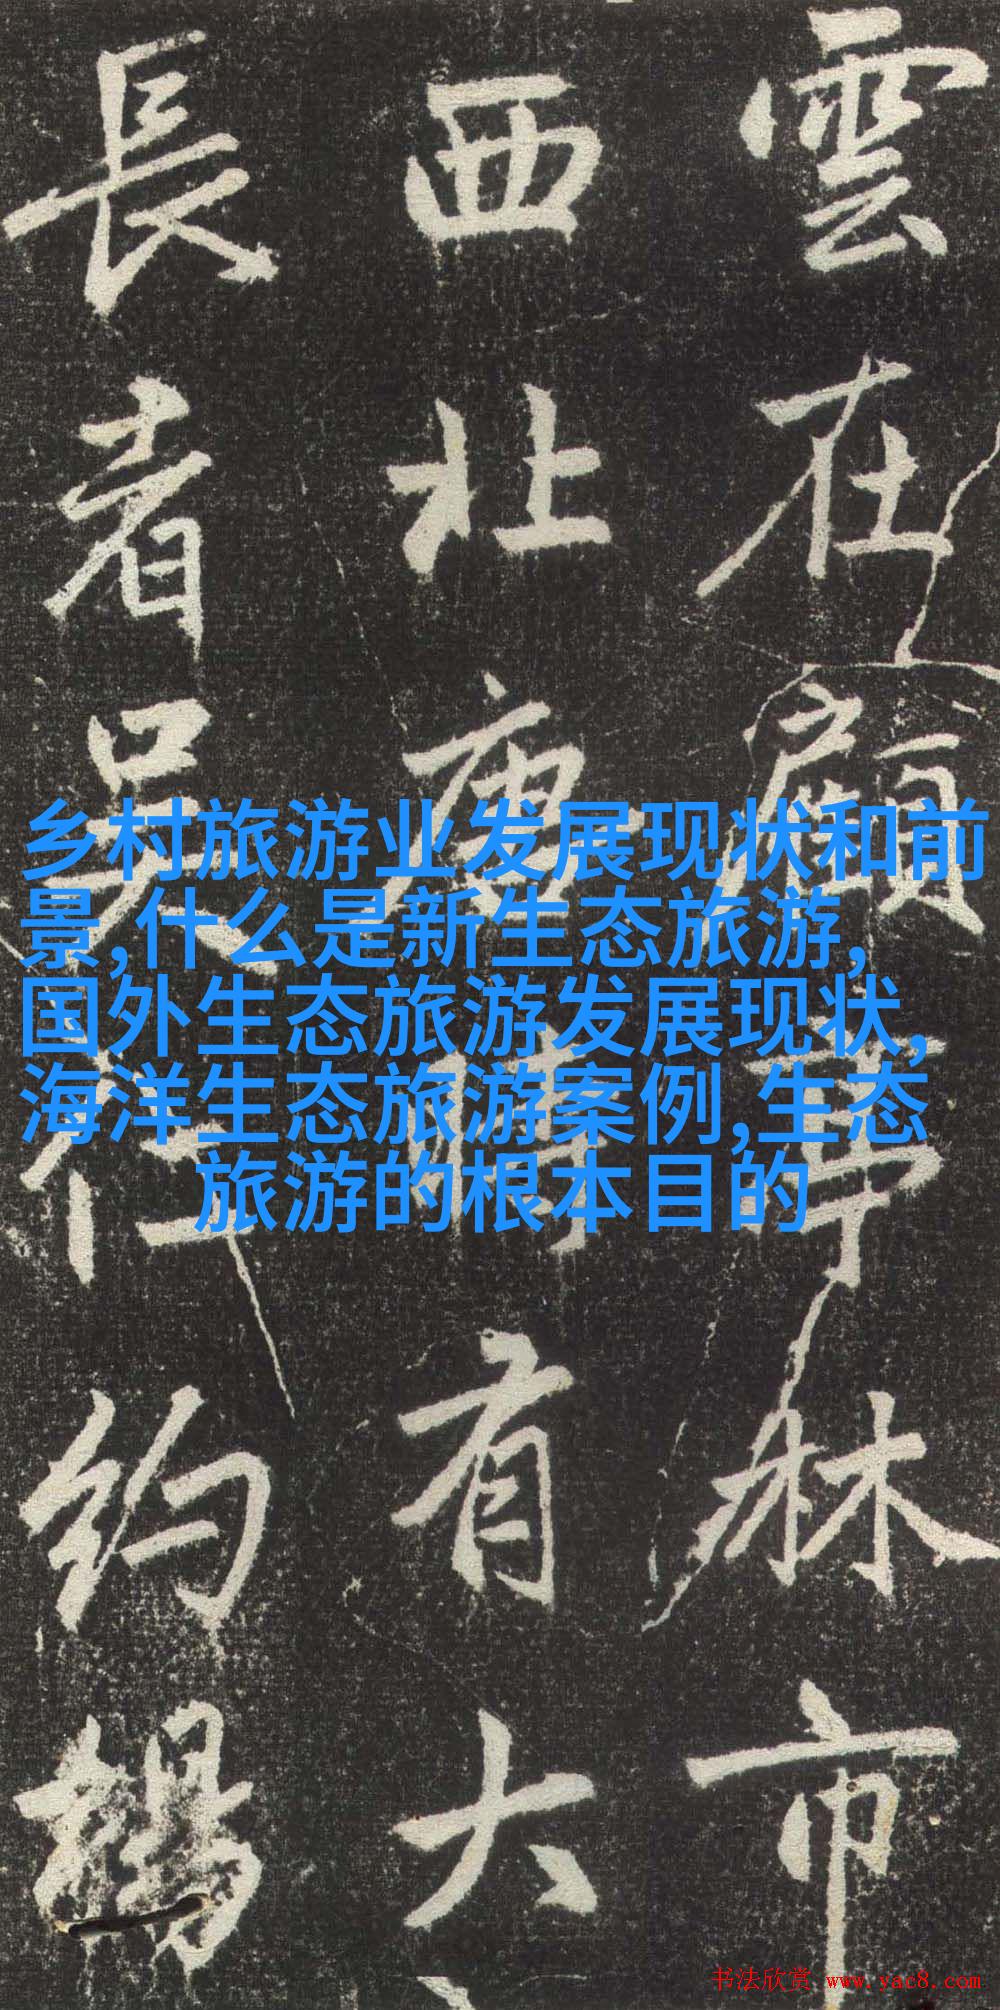 雲在顧亭林市
西北唐時有大
長者吳約
乡村旅游业发展现状和前
景,什么是新生态旅游,
国外生态旅游发展现状,
海洋生态旅游案例,生态
旅游的根本目的
书法欣赏 www.yac8.com